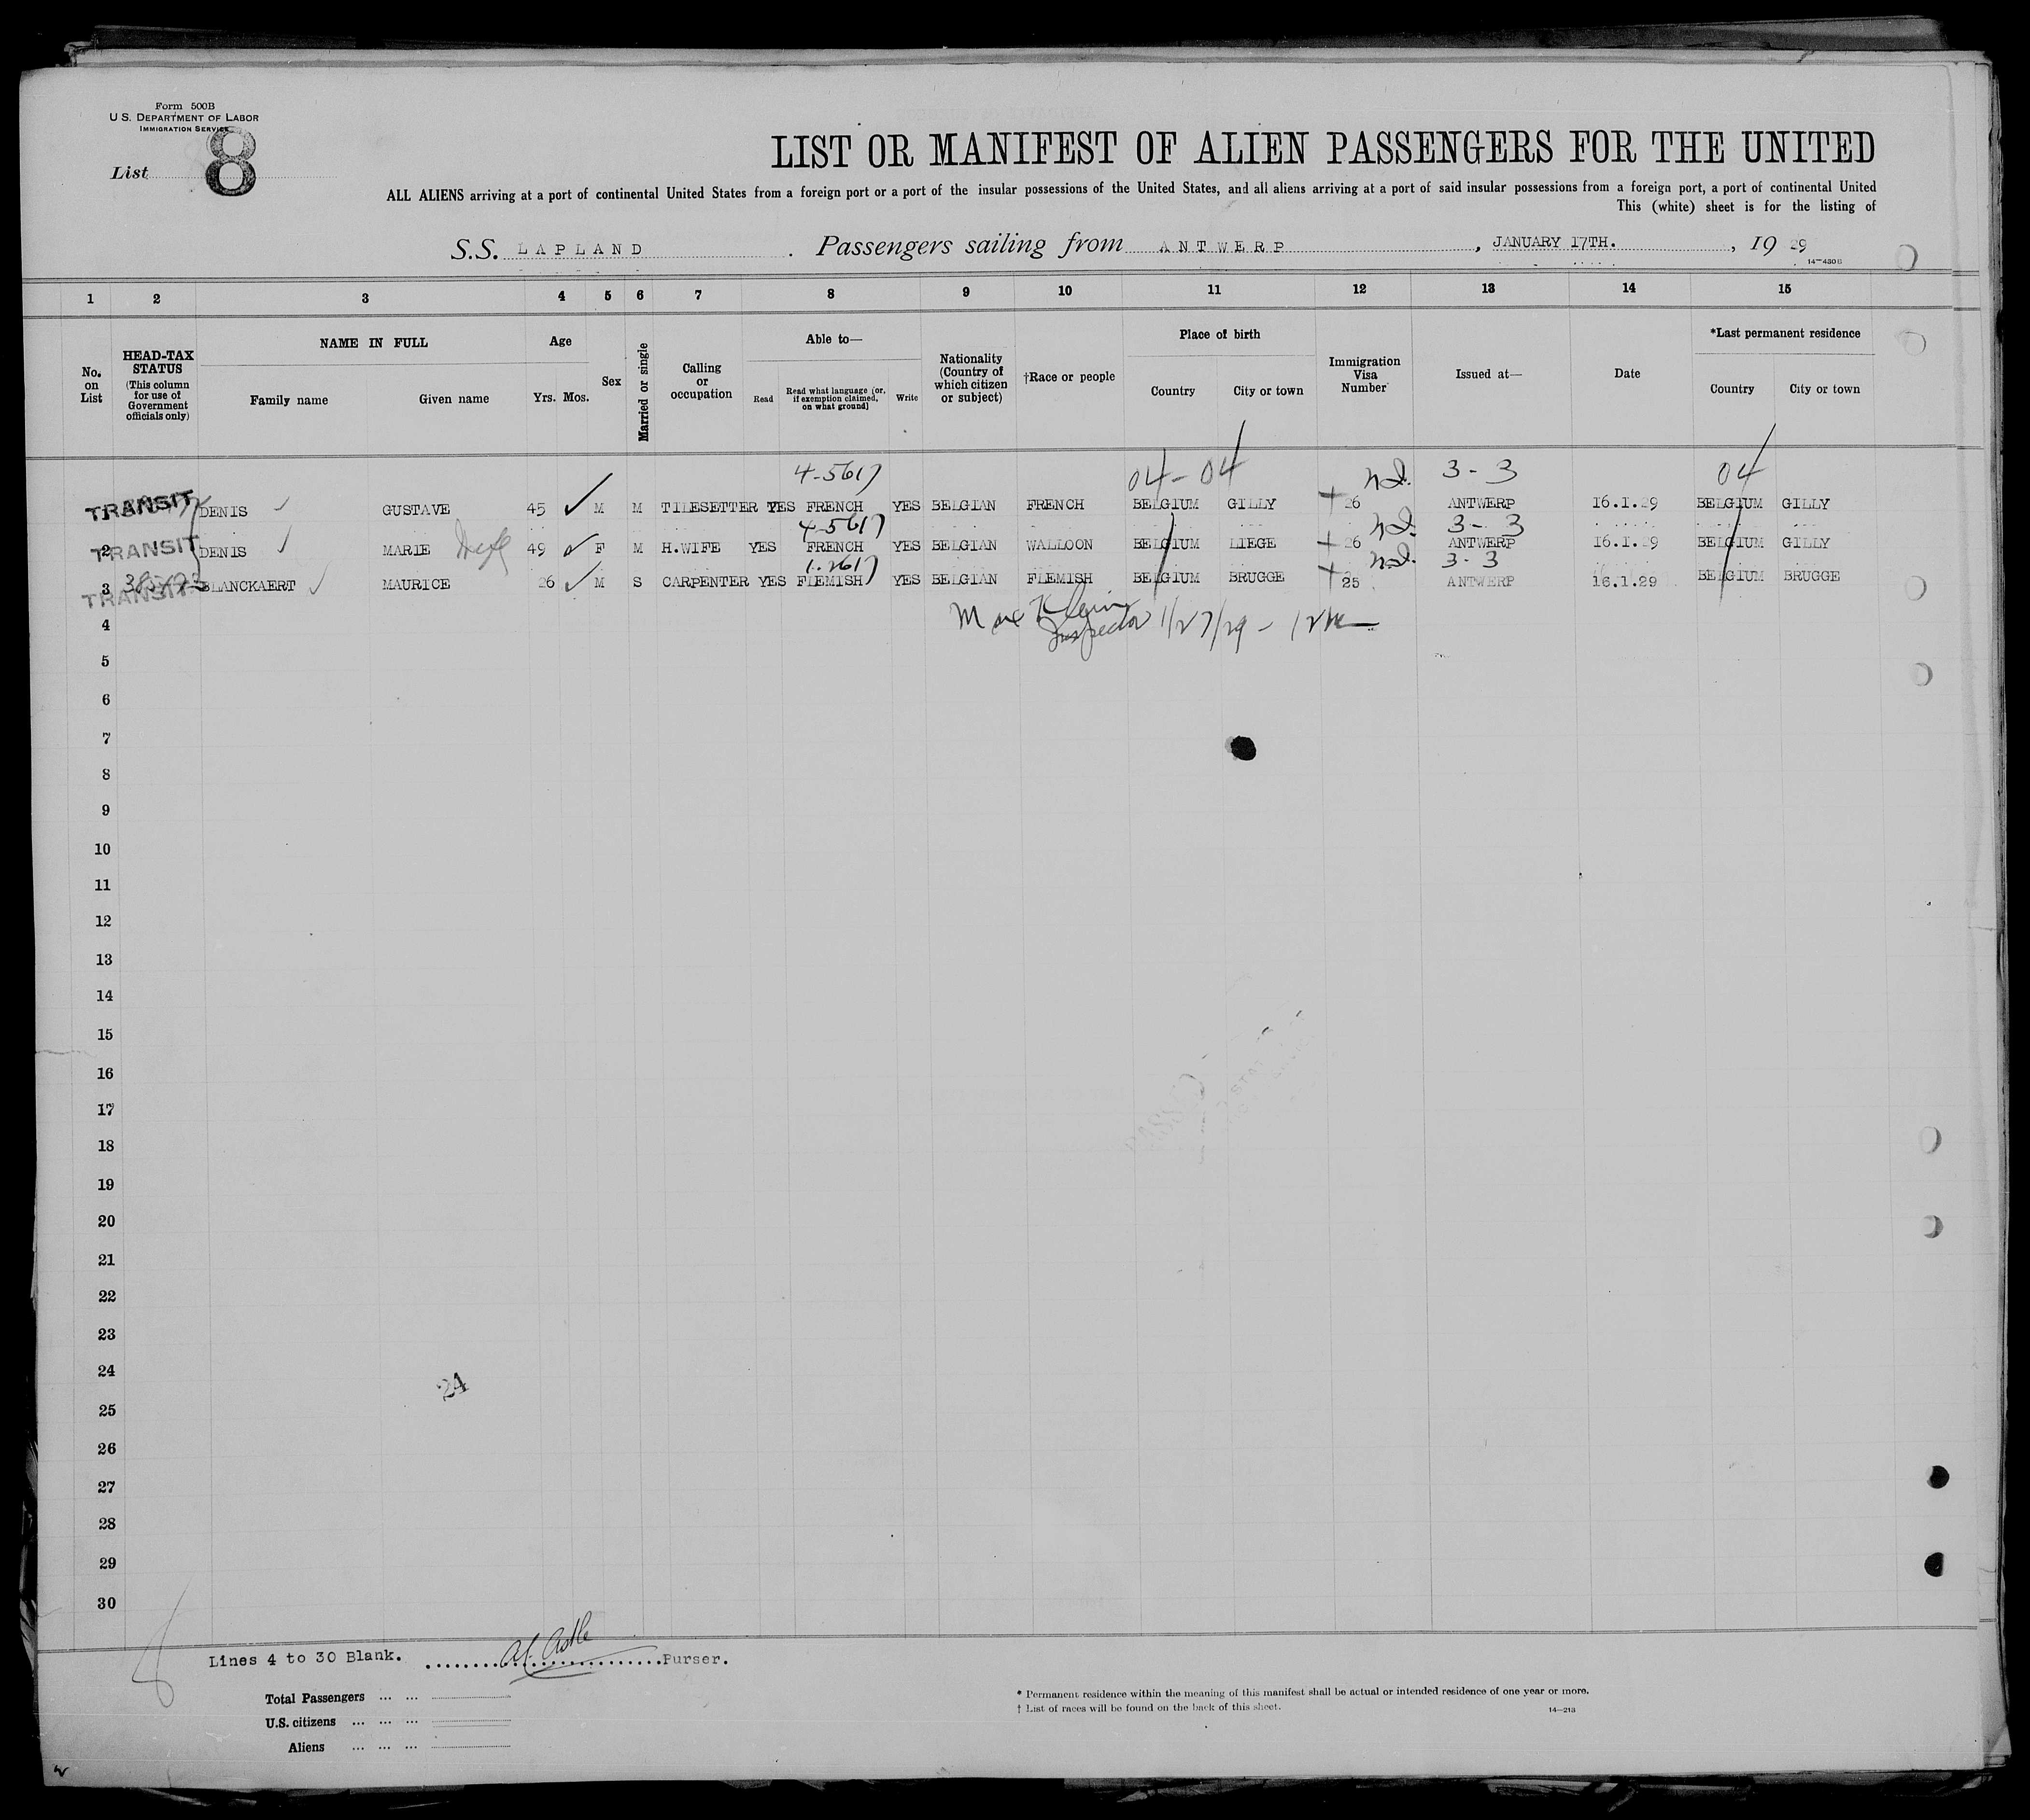 Form 500B
U S. DEPARTMENT OF LABOR
IMMIGRATION SERVICE
List 8
LIST OR MANIFEST OF ALIEN PASSENGERS FOR THE UNITED
ALL ALIENS arriving at a port of continental United States from a foreign port or a port of the insular possessions of the United States, and all aliens arriving at a port of said insular possessions from a foreign port, a port of continental United
This (white) sheet is for the listing of
S.S. LAPLAND. Passengers sailing from ANTWERP, JANUARY 17TH., 1929
14—430B
1 2 3 4 5 6 7 8 9 10 11 12 13 14 15
No. on List
HEAD-TAX STATUS (This column for use of Government officials only)
NAME IN FULL
Family name Given name
Age
Yrs. Mos.
Sex
Married or single
Calling or occupation
Able to—
Read Read what language [or, if exemption claimed, on what ground] Write
Nationality (Country of which citizen or subject)
†Race or people
Place of birth
Country City or town
Immigration Visa Number
Issued at—
Date
*Last permanent residence
Country City or town
4-5617 04-04 3-3 04
TRANSIT DENIS GUSTAVE 45 M M TILESETTER YES FRENCH YES BELGIAN FRENCH BELGIUM GILLY 26 ANTWERP 16.1.29 BELGIUM GILLY
4-5617 3-3
TRANSIT 2 DENIS MARIE 49 F M H.WIFE YES FRENCH YES BELGIAN WALLOON BELGIUM LIEGE 26 ANTWERP 16.1.29 BELGIUM GILLY
1.2617 3-3
TRANSIT 3 BLANCKAERT MAURICE 26 M S CARPENTER YES FLEMISH YES BELGIAN FLEMISH BELGIUM BRUGGE 25 ANTWERP 16.1.29 BELGIUM BRUGGE
Max Klein
Inspector 1/27/29
4
5
6
7
8
9
10
11
12
13
14
15
16
17
18
19
20
21
22
23
24
24
25
26
27
28
29
30
8
Lines 4 to 30 Blank. Purser.
Total Passengers
U.S. citizens
Aliens
* Permanent residence within the meaning of this manifest shall be actual or intended residence of one year or more.
† List of races will be found on the back of this sheet.
14—213